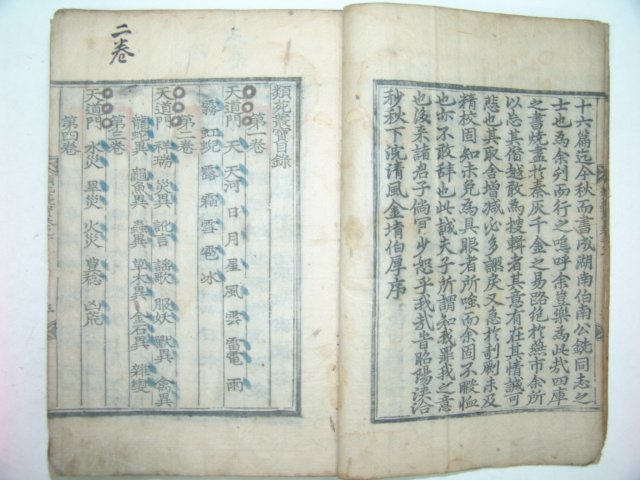 十六篇迄今秋而書成湖南伯南公銑同志之
士也為余刋而行之嗚呼余豈樂為此㢤四庫
之書燒盡於秦灰千金之易路絶於燕市余所
以忘其僭越敢為搜輯者其意有在其情誠可
悲也其取舎増減必多謬戾又急於剞劂未及
精校固知未免為具眼者所嗤而余固不暇恤
也亦不敢辞也此誠夫子所謂知我罪我之意
也後来諸君子倘肯少恕乎我㢤昔昭陽洽
秒秋下浣清風金堉伯厚序
類苑叢寶目錄
第一卷
天道門 天 天河 日 月 星 風 雲 雷電 雨
霧 虹蜺 露 霜 雪 雹 冰
第二卷
天道門 祥瑞 災異 訛言 謠歌 服妖 獸異 禽異
龍蛇異 龜魚異 蟲異 草木異 金石異 雜變
第三卷
天道門 水災 旱災 火災 豊稔 凶荒
第四卷
二卷